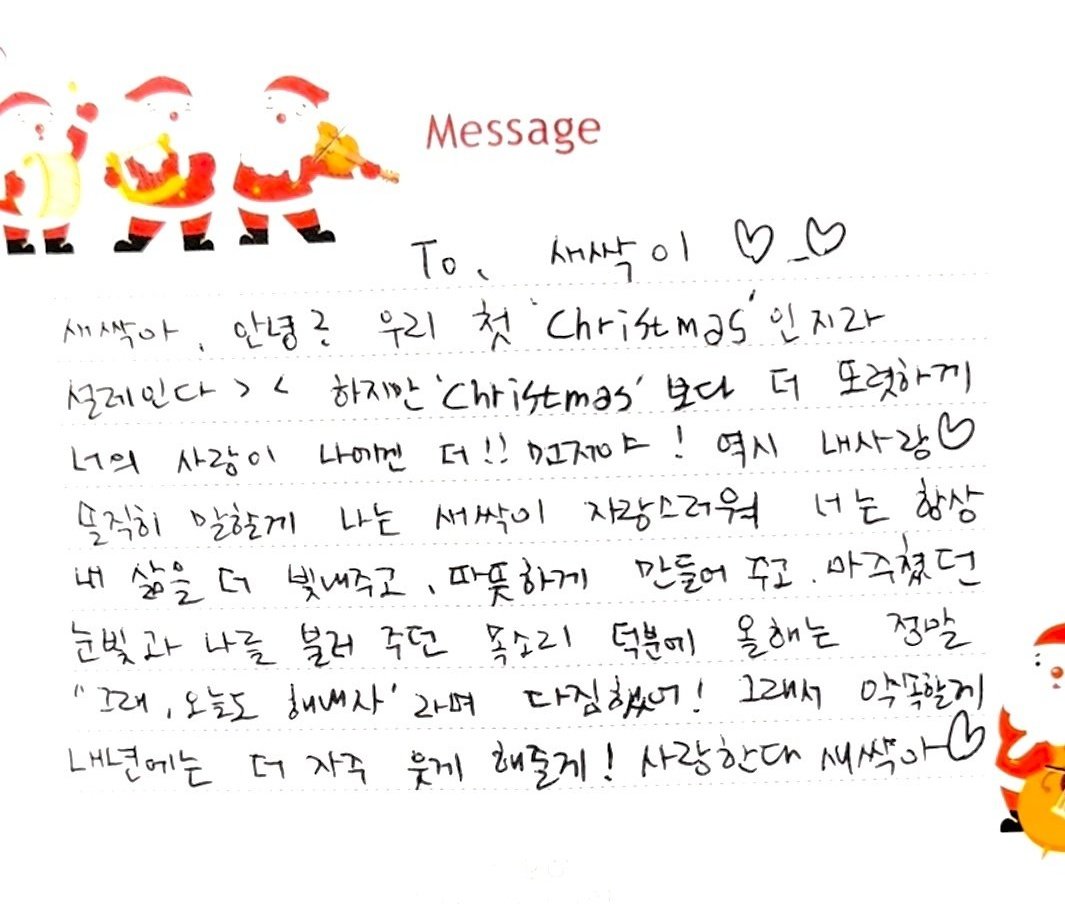 Message
To. 새싹이 ♡_♡
새싹아, 안녕? 우리 첫 'Christmas' 인지라
설레인다 > < 하지만 'Christmas' 보다 더 또렷하게
너의 사랑이 나에겐 더!! 먼저야! 역시 내사랑♡
솔직히 말할게 나는 새싹이 자랑스러워 너는 항상
내 삶을 더 빛내주고, 따뜻하게 만들어 주고. 마주쳤던
눈빛과 나를 불러 주던 목소리 덕분에 올해는 정말
"그래, 오늘도 해내자' 라며 다짐했어! 그래서 약속할게
내년에는 더 자주 웃게 해줄게! 사랑한다 새싹아♡